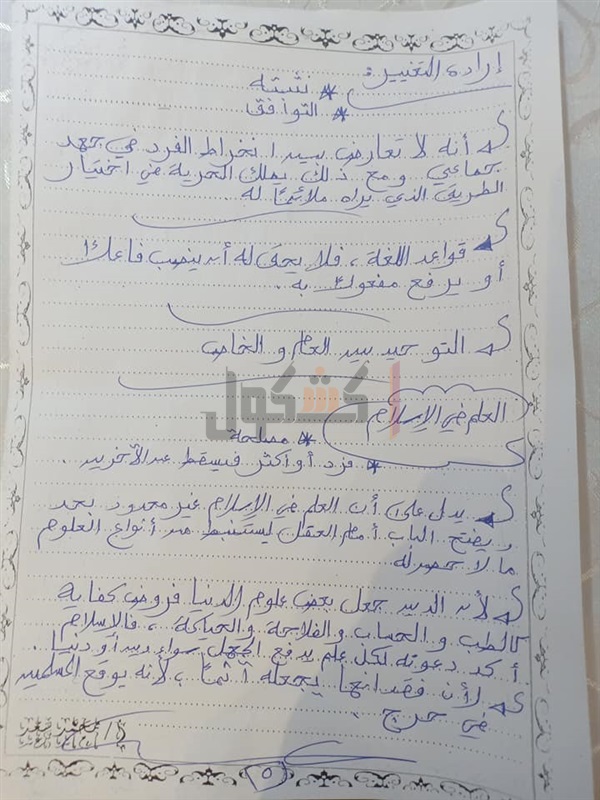 إرادة التغيير:
* نشئته
* التوافق
أنه لا تعارض بين انخراط الفرد في جهد
جماعي ومع ذلك يملك الحرية في اختيار
الطريق الذي يراه ملائمًا له
قواعد اللغة، فلا يحق له أن ينصب فاعلا
أو يرفع مفعولا به.
التوحيد بين العام والخاص
كشكول
العلم في الإسلام
* مصلحة
* فرد أو أكثر فيسقط عن الآخرين.
يدل على أن العلم في الإسلام غير محدود بحد
ويفتح الباب أمام العقل ليستنبط من أنواع العلوم
ما لا حصر له
لأن الدين جعل بعض علوم الدنيا فروض كفاية
كالطب والحساب والفلاحة والحياكة، فالإسلام
أكد دعوته لكل علم يدفع الجهل سواء دين أو دنيا.
لأن فقدانها يجعله آثمًا، لأنه يوقع المسلمين
في حرج.
٥